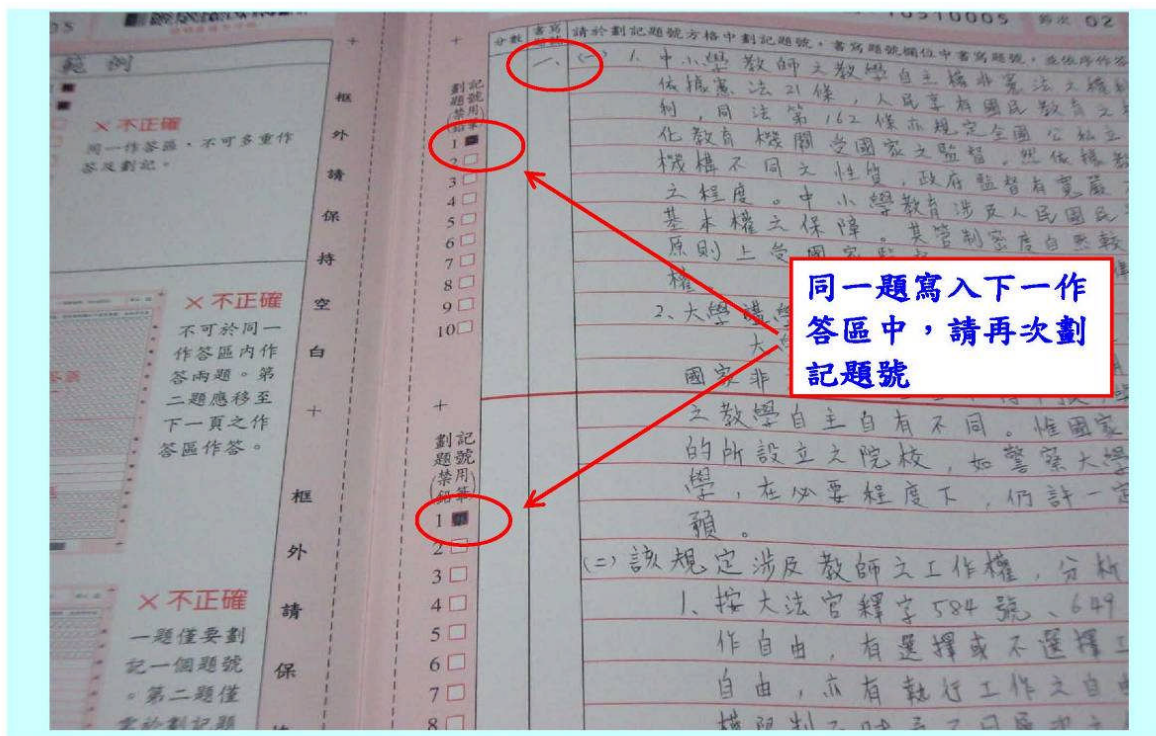 10510005
02
範例
×不正確
同一作答區，不可多重作
答及劃記。
×不正確
不可於同一
作答區內作
答兩題。第
二題應移至
下一頁之作
答區作答。
×不正確
一題僅要劃
記一個題號
。第二題僅
框外請保持空白
框外請保
劃記
題號
(禁用
鉛筆)
1
2
3
4
5
6
7
8
9
10
劃記
題號
(禁用
鉛筆)
1
2
3
4
5
6
7
8
分數
書寫
題號
請於劃記題號方格中劃記題號，書寫題號欄位中書寫題號，並依序作答
一、
(一) 1. 中小學教師之教學自主權非憲法之權利
依據憲法21條，人民享有國民教育之
利，同法第162條亦規定全國公私立
化教育機關受國家之監督，然依據
機構不同之性質，政府監督有寬嚴
之程度。中小學教育涉及人民國民
基本權之保障。其管制密度自然較
原則上受國家
權
2、大學講學
大
國家非
之教學自主自有不同。惟國家
的所設立之院校，如警察大學
學，在必要程度下，仍許一定
預。
(二)該規定涉及教師之工作權，分析
1、按大法官釋字584號、649
作自由，有選擇或不選擇工
自由，亦有執行工作之自由
同一題寫入下一作
答區中，請再次劃
記題號